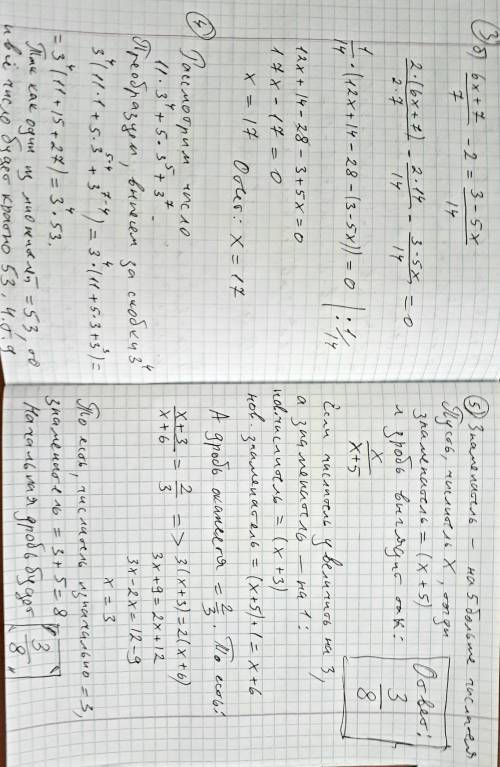 3 б) (6x+7)/7 - 2 = (3-5x)/14
2·(6x+7)/(2·7) - 2·14/14 - (3-5x)/14 = 0
1/14 · (12x+14-28-(3-5x)) = 0 | : 1/14
12x+14-28-3+5x=0
17x-17=0
x=17 Ответ: x=17
④ Рассмотрим число
11·3⁴+5·3⁵+3⁷.
Преобразуем, вынесем за скобки 3⁴
3⁴(11·1+5·3⁵⁻⁴+3⁷⁻⁴)=3⁴(11+5·3+3³)=
=3⁴(11+15+27)=3⁴·53.
Так как один из множителей = 53, то
и всё число будет кратно 53. ч.т.д
⑤ Знаменатель – на 5 больше числителя
Пусть, числитель x, тогда
знаменатель = (x+5)
и дробь выглядит так:
x/(x+5)
Если числитель увеличить на 3,
а знаменатель – на 1:
нов. числитель = (x+3)
нов. знаменатель = (x+5)+1=x+6
А дробь окажется = 2/3. То есть:
(x+3)/(x+6) = 2/3 => 3(x+3)=2(x+6)
3x+9=2x+12
3x-2x=12-9
x=3
То есть, числитель изначально = 3,
знаменатель = 3+5=8
Начальная дробь будет "3/8"
Ответ:
3/8